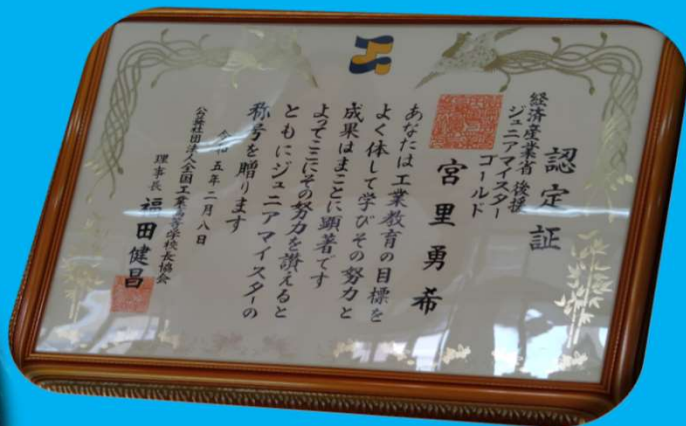 認定証
経済産業省後援
ジュニアマイスター
ゴールド
宮里勇希
あなたは工業教育の目標を
よく体して学びその努力と
成果はまことに顕著です
よってここにその努力を讃えると
ともにジュニアマイスターの
称号を贈ります
令和五年二月八日
公益社団法人全国工業高等学校長協会
理事長 福田健昌